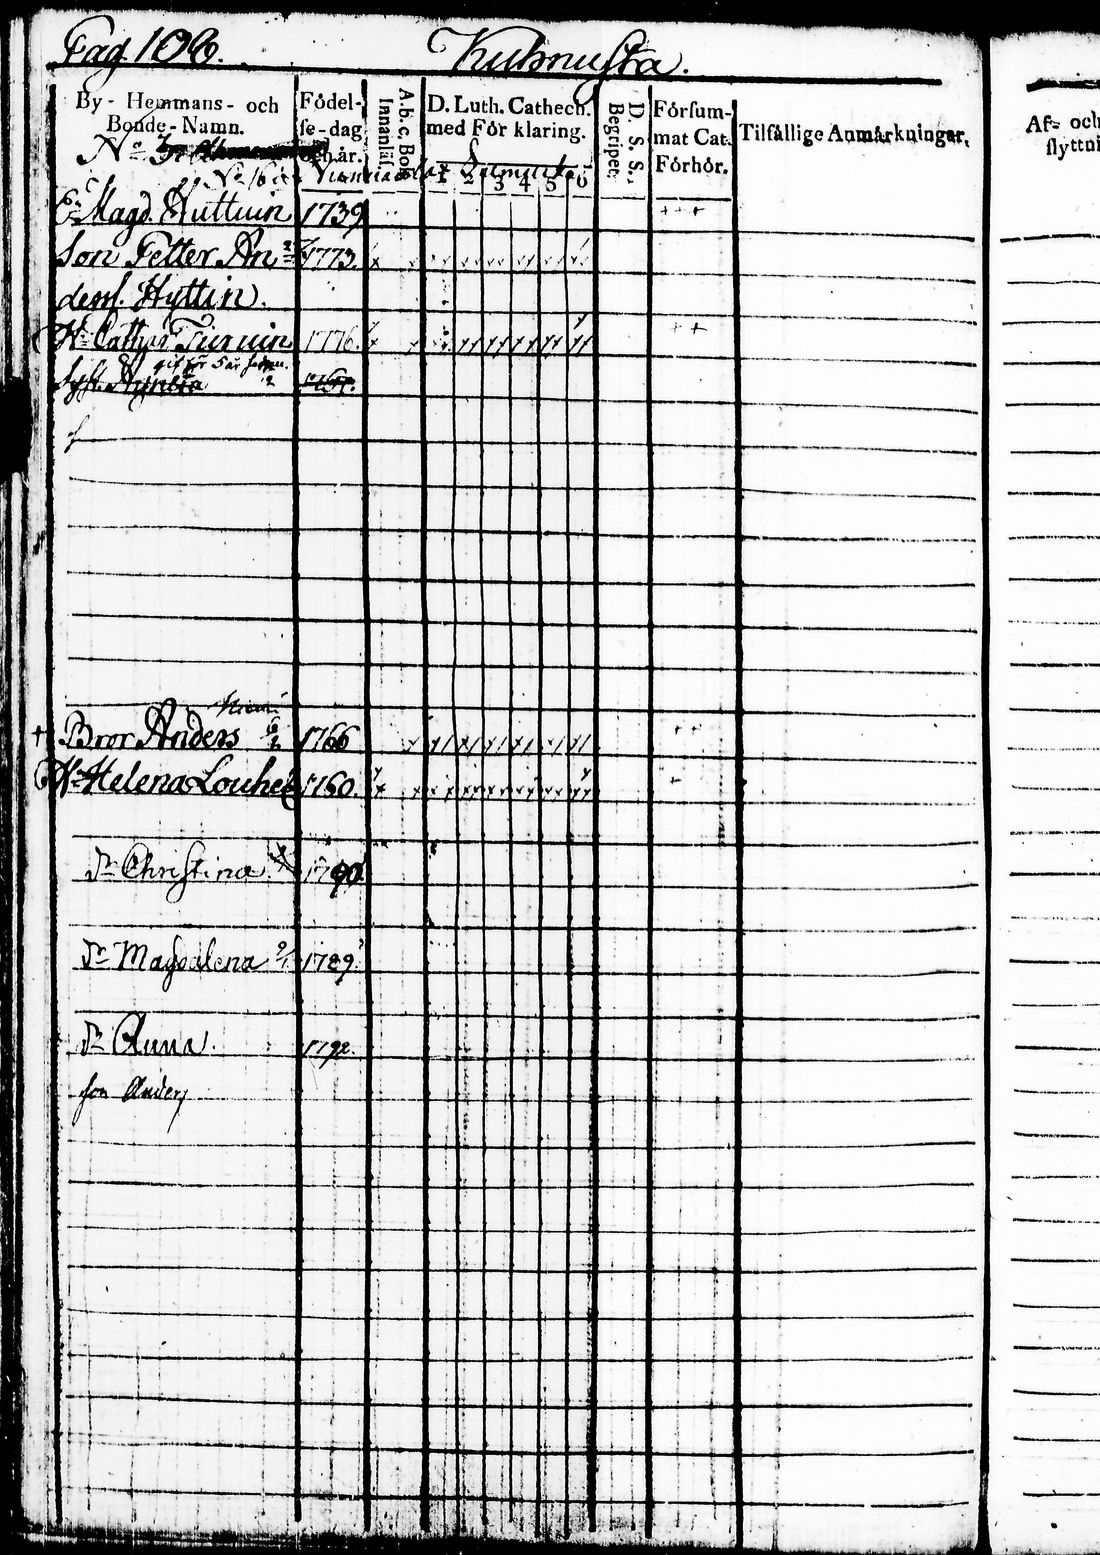 Pag. 106. Kuhmusta.
By- Hemmans- och Bonde-Namn.
Födel-se-dag och år.
A.b.c. Bok Innanläs.
D. Luth. Cathech. med Förklaring.
1 2 3 4 5 6
D. S. S. Begripet.
Försum-mat Cat. Förhör.
Tilfällige Anmärkningar.
Af- och
flyttni
No 3
No 16
Magd. Huttuin 1739
Son Petter An 1773.
derss. Hyttin.
H: Cathar. Turuin 1776.
Syst.
Bror Anders 6/2 1766
H: Helena Louhel 1760.
Dr Christina 1790
Dr Magdalena 9/ 1789
Dr Anna. 1792.
son Anders